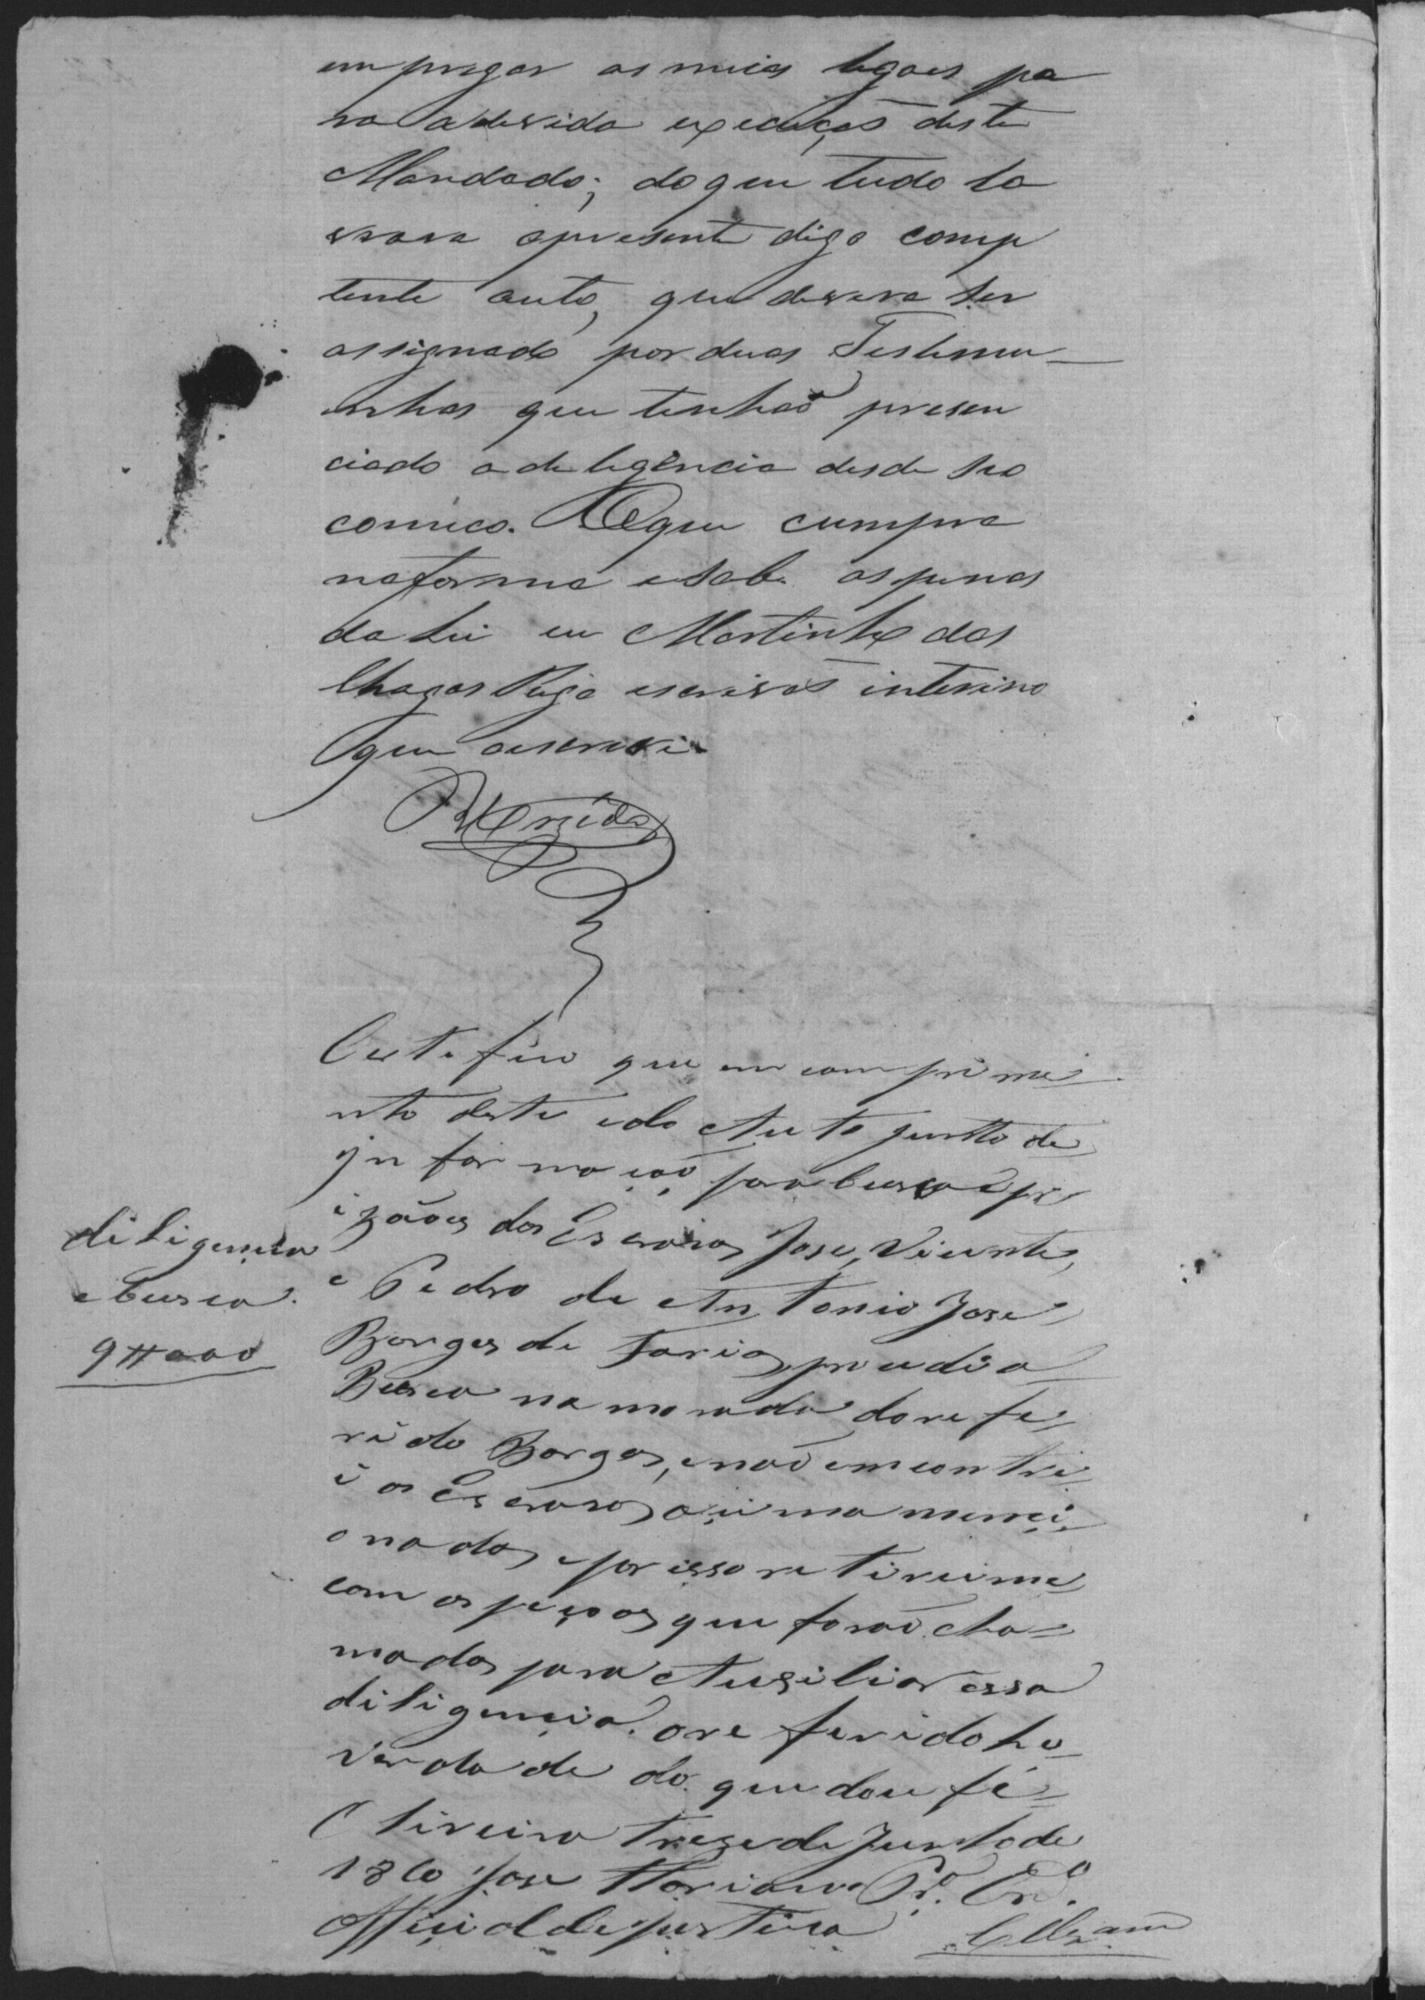 empregar os meios legaes pa
ra a devida execução deste
Mandado; do que tudo la
vrara apresente digo compe
tente auto, que devera ser
assignado por duas Testemu
nhas que tenhaõ presen
ciado a deligencia desde seo
começo. O que cumpra
na forma e sob as penas
da Lei eu Martinho das
Chagas escrivaõ interino
que o escrevi
Certefico que em comprime
nto deste e do Auto junto de
jnformaçaõ para busca e pr
izões dos Escravos Jose, Vicente,
e Pedro de Antonio Jose
Borges de Faria, precedi a
Busca na morada do refe
rido Borges, e naõ emcontre
i os Escravos acima menci
onados, e por isso retireime
com as peçoas que foraõ cha
madas para Ausiliar essa
diligençia. o referido he
verdade do que dou fé
Oliveira treze de Junho de
1860 Jose Floriano
Official de justiça
diligencia
e busca.
9#000